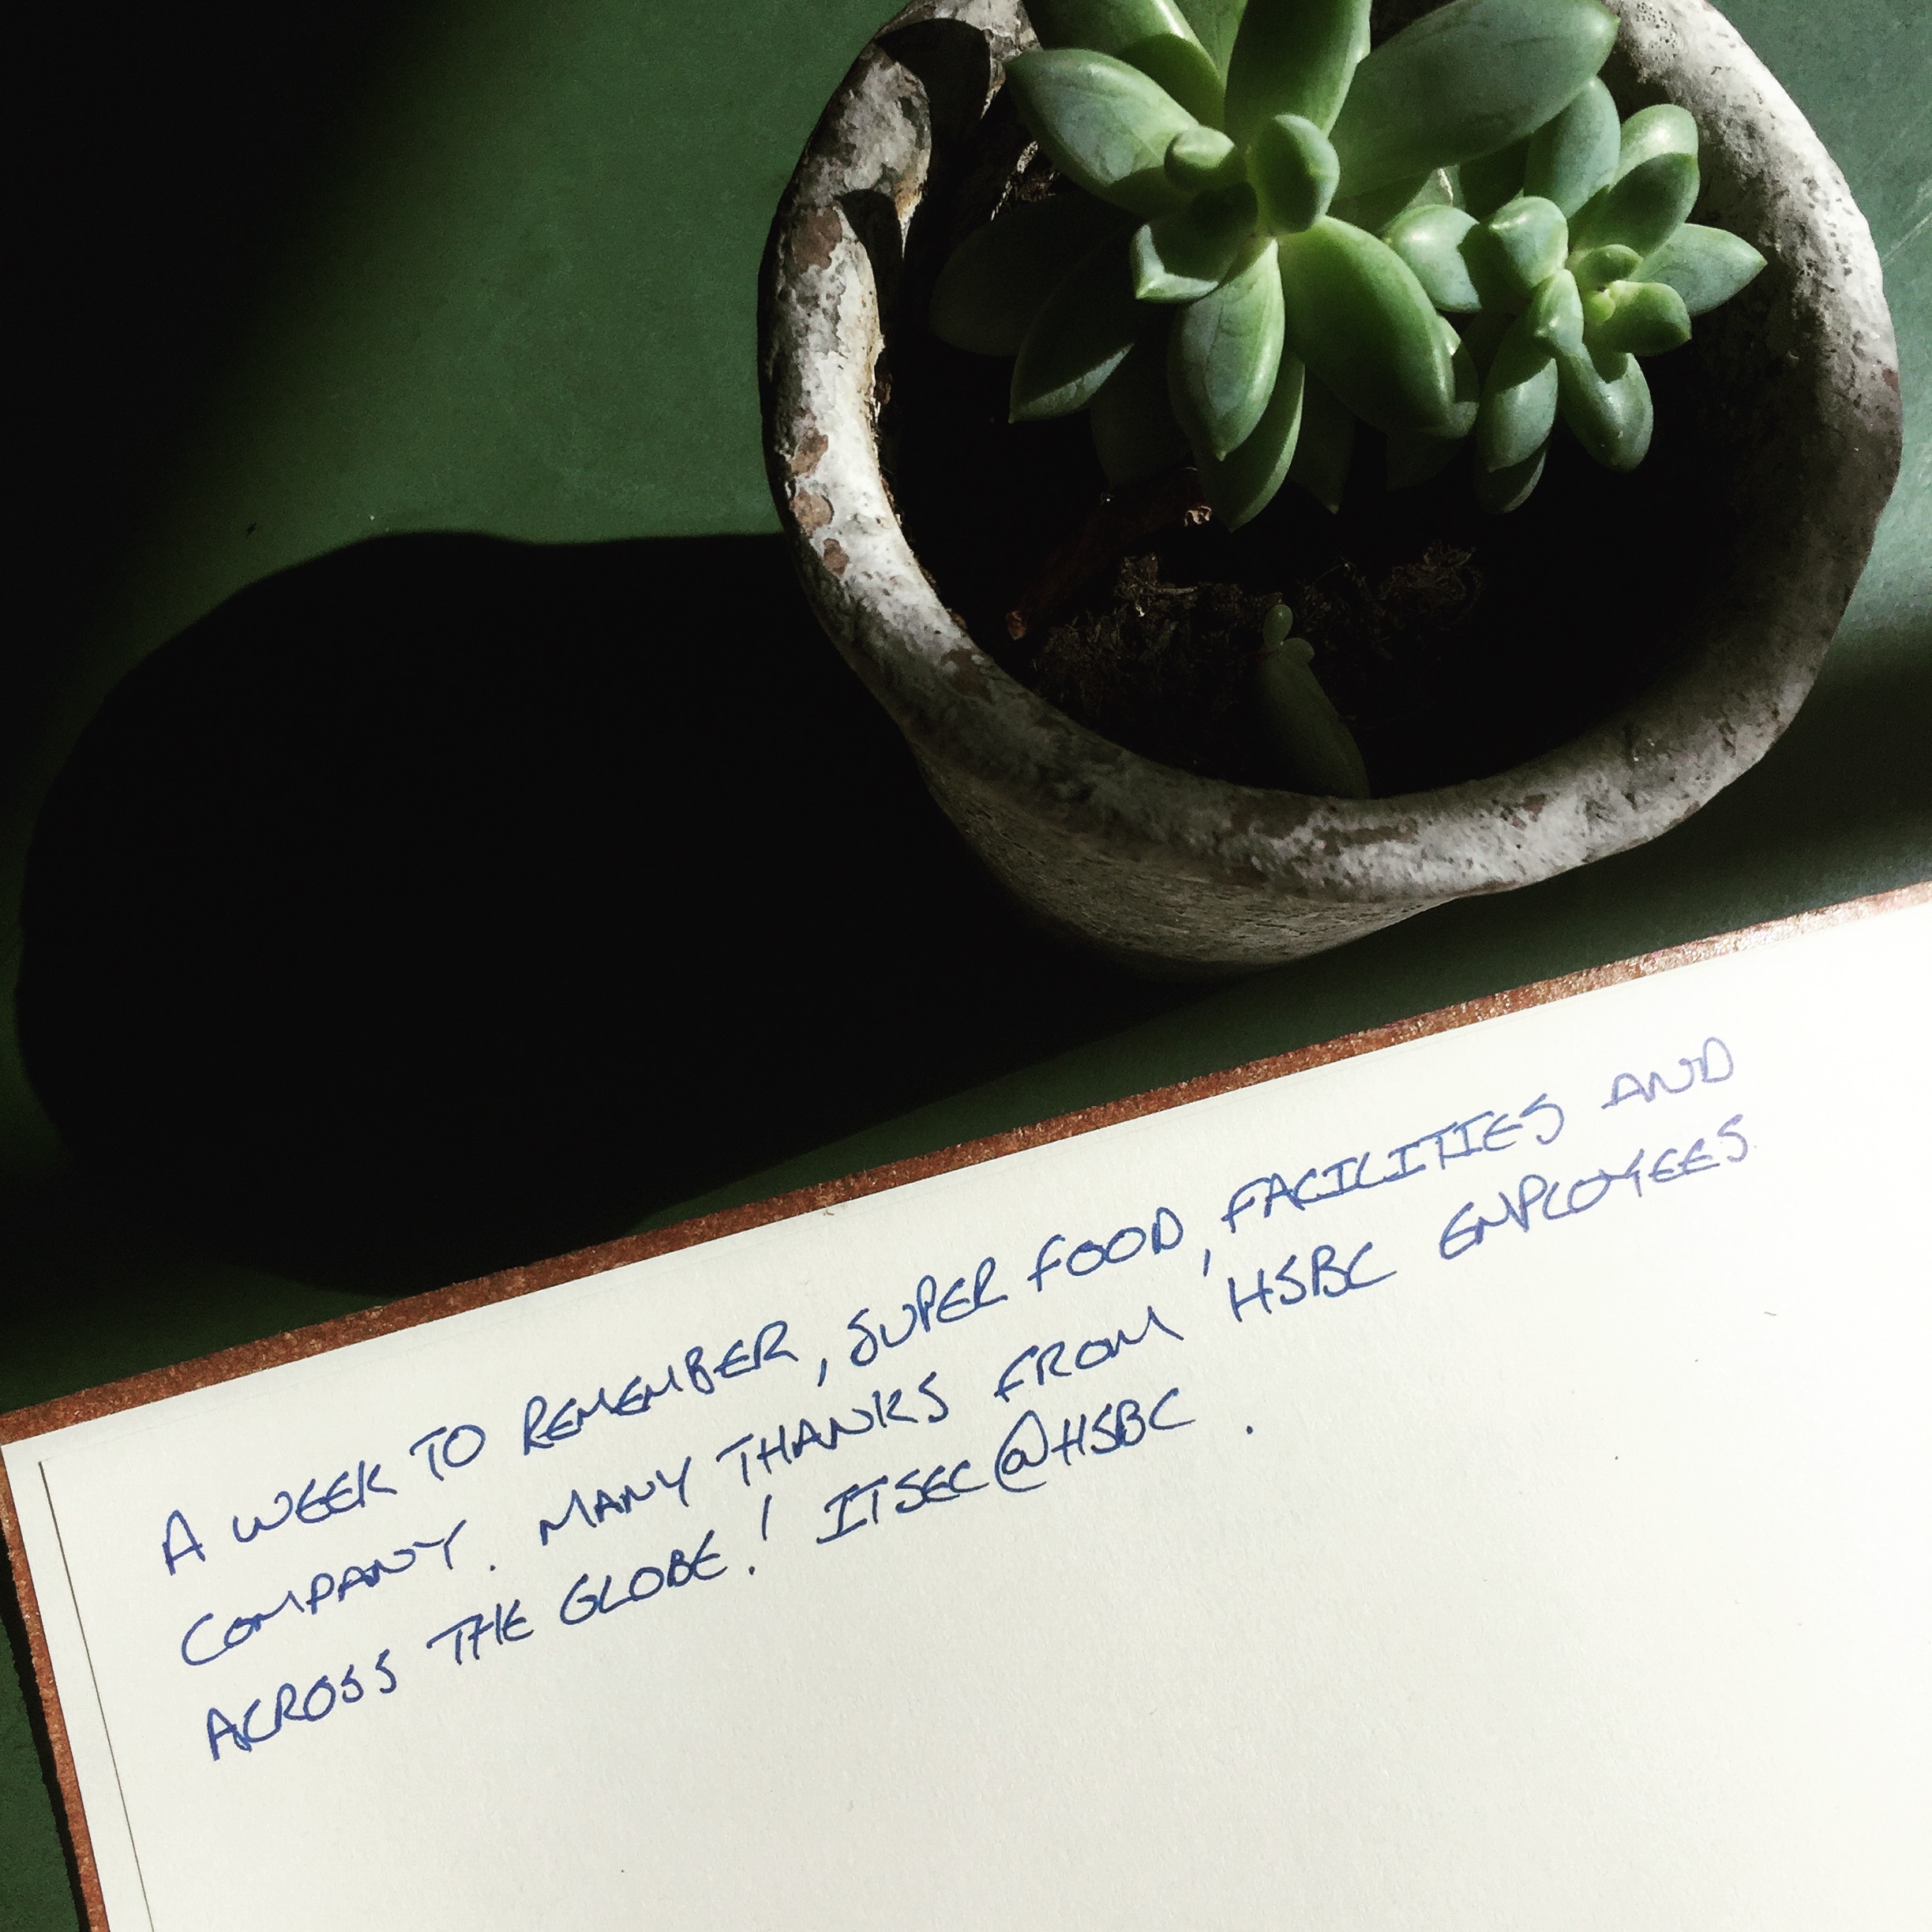 A WEEK TO REMEMBER, SUPER FOOD, FACILITIES AND
COMPANY. MANY THANKS FROM HSBC EMPLOYEES
ACROSS THE GLOBE! ITSEC@HSBC.